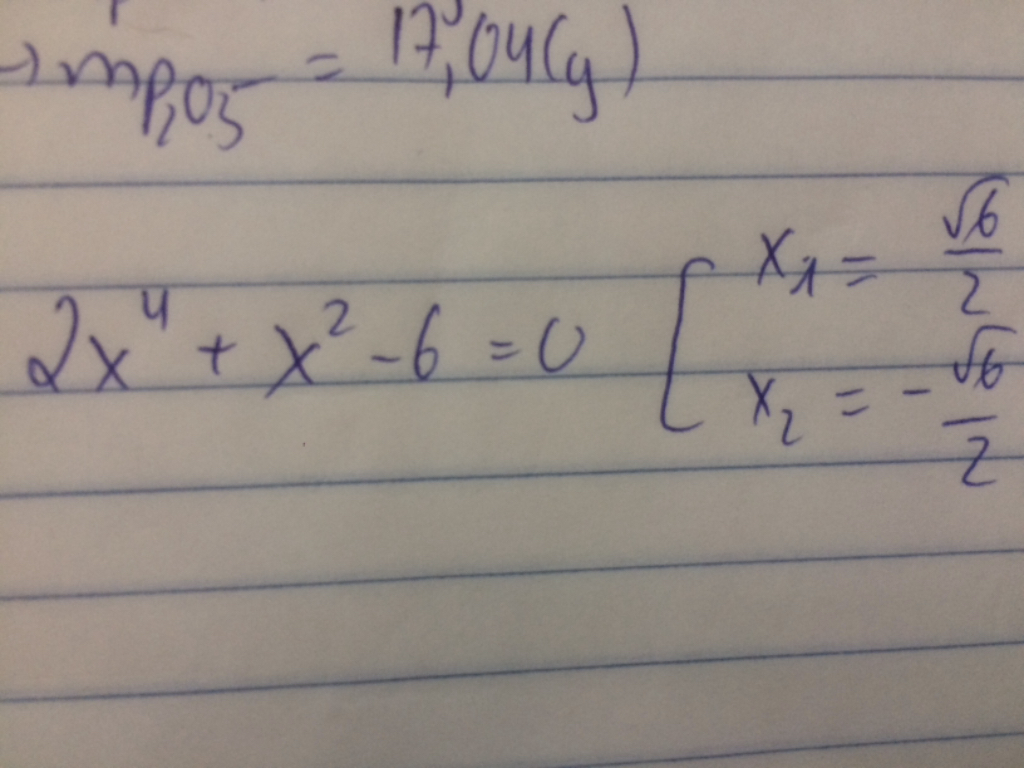 → mP₂O₅ = 17,04(g)
2x⁴ + x² - 6 = 0 [ x₁ = √6/2
x₂ = -√6/2